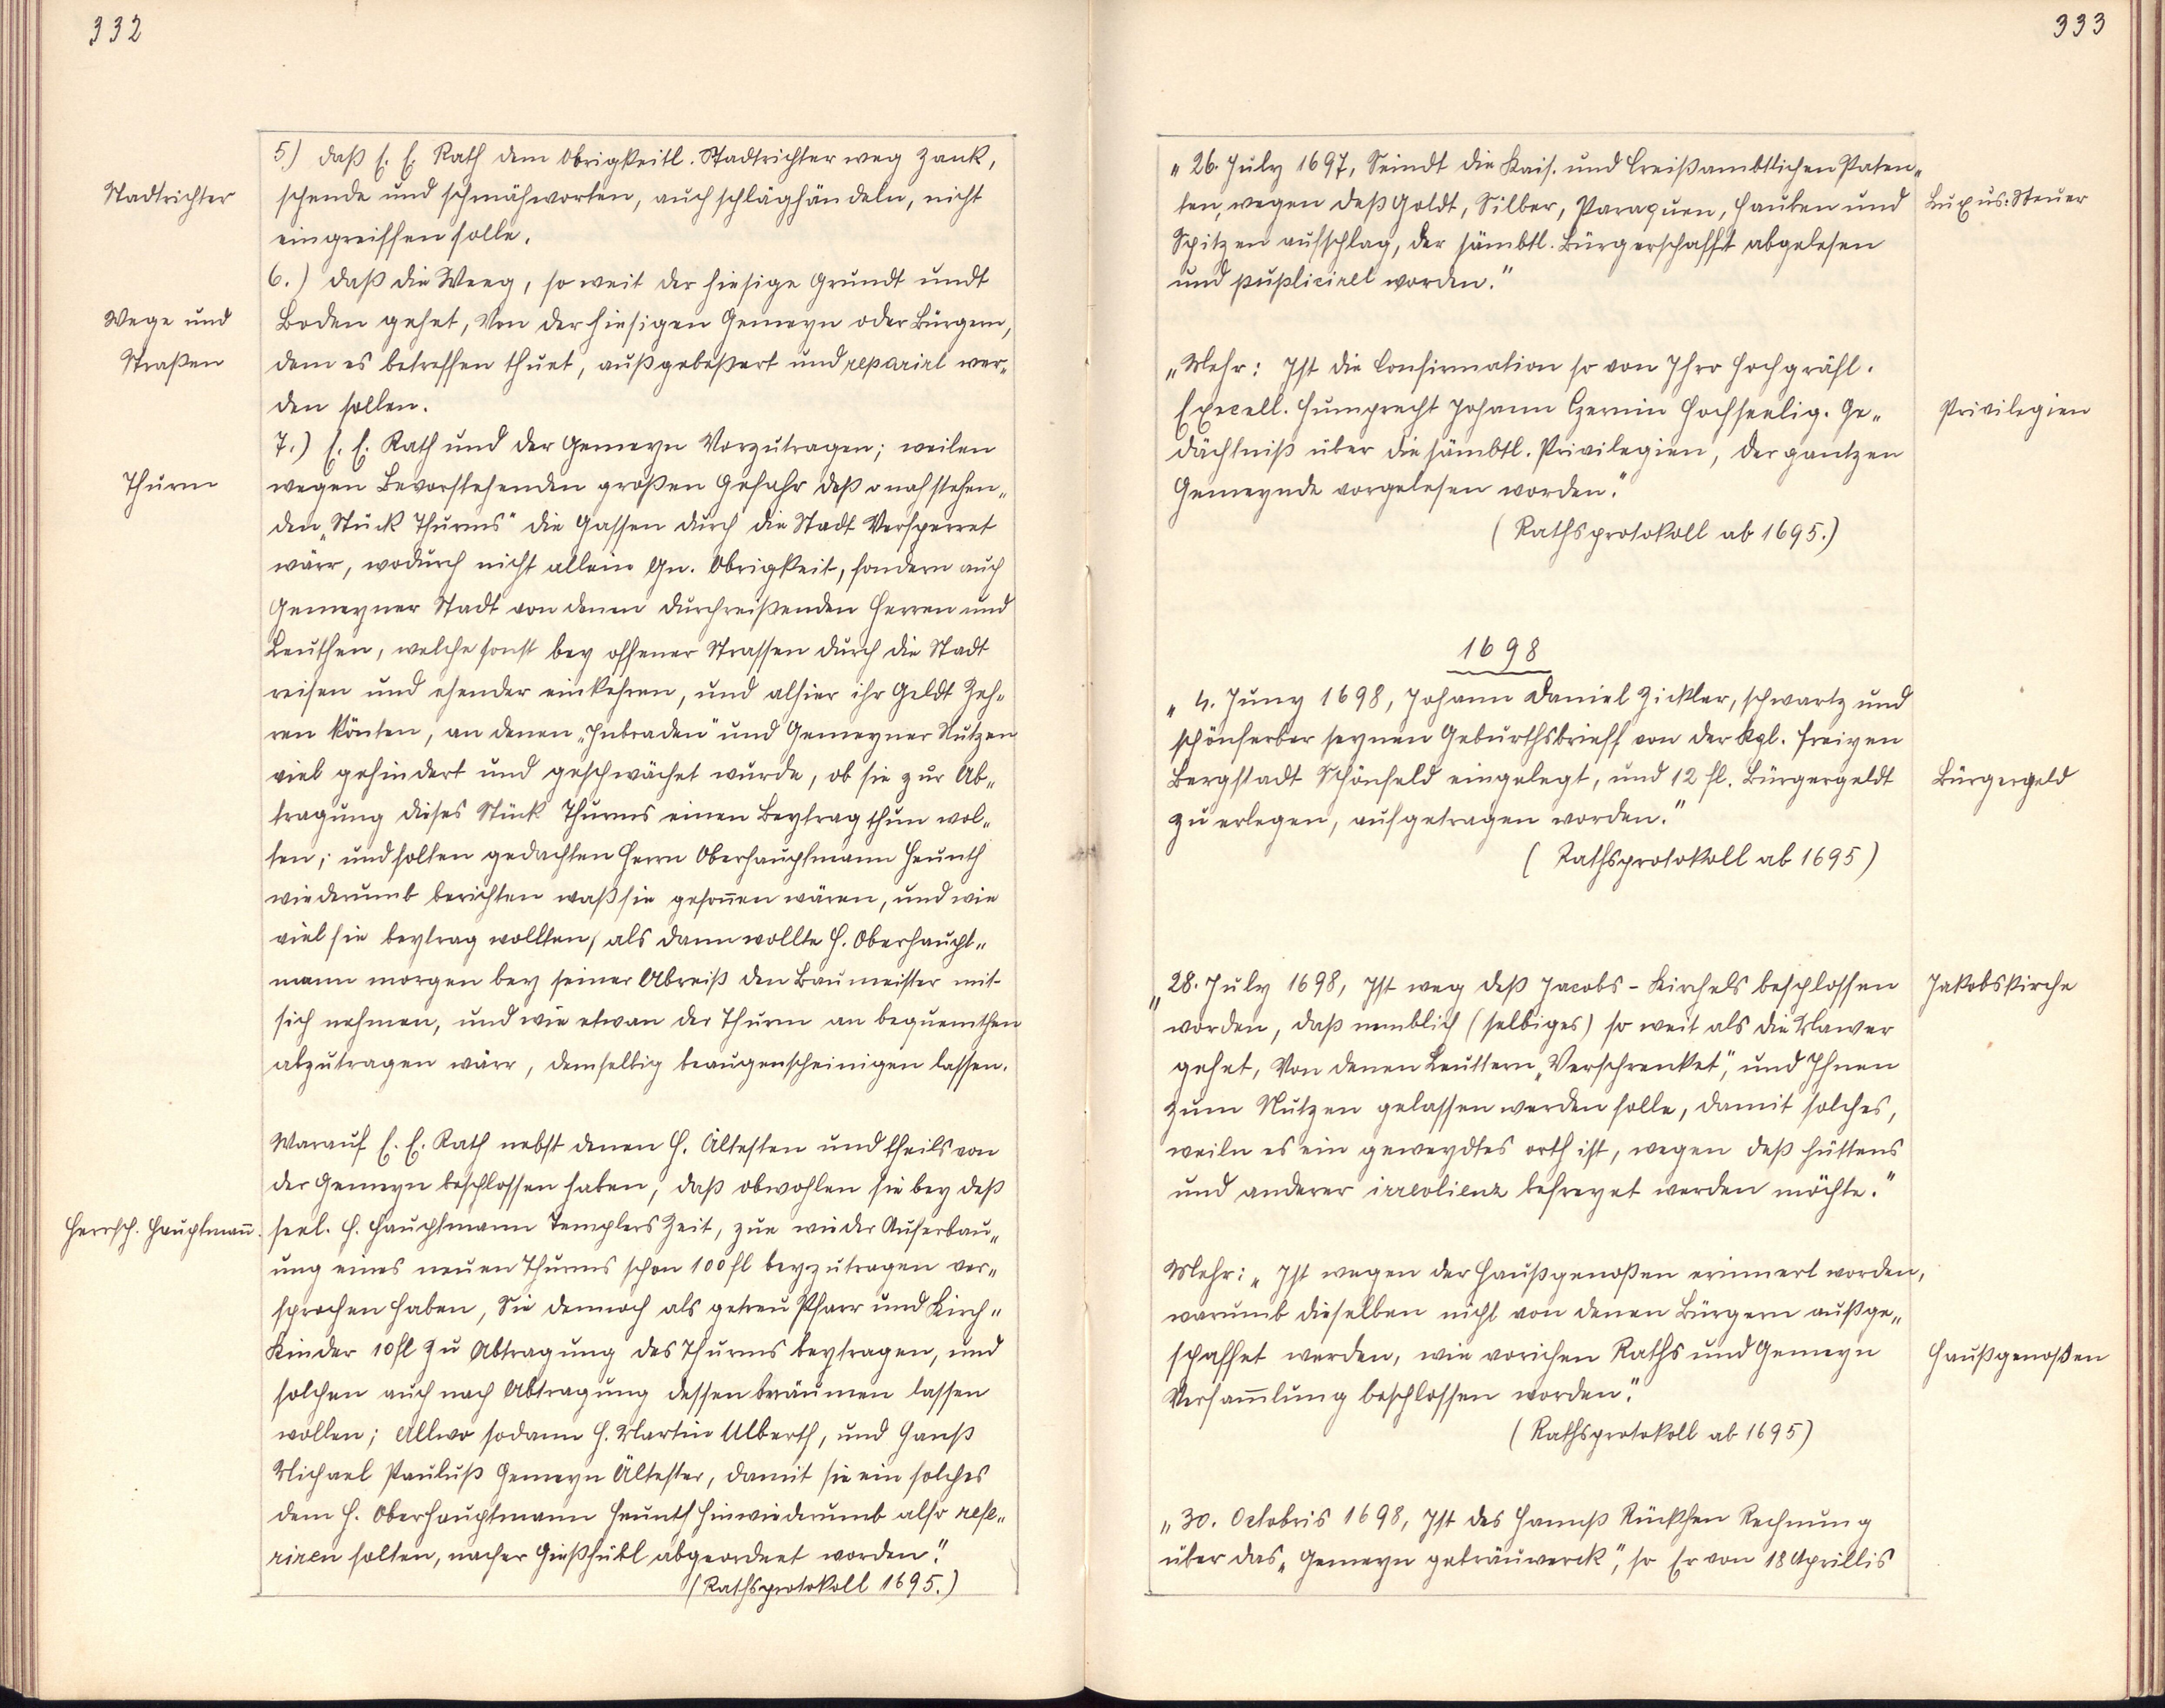 332
5.) daß E. E. Rath dem Obrigkeitl. Stadtrichter weg Zank,
Stadtrichter
schende und schmähworten, auch schläghändeln, nicht
eingreiffen solle.
6.) daß die Weeg, so weit der hiesige Grundt undt
Wege und
Boden gehet, Von der hiesigen Gemeyn oder Bürgern,
Straßen
dem es betreffen thuet, außgebeßert und reparirt wer„
den sollen.
7.) E. E. Rath und der Gemeyn Vorzutragen; weilen
Thurm
wegen Bevorstehenden großen Gefahr deß nahstehen„
den „Stück Thurms" die Gassen durch die Stadt Versperret
wärr, wodurch nicht allein Gn. Obrigkeit, sondern auch
Gemeyner Stadt von denen durchreißenden Herren und
Leuthen, welche sonst bey offener Strassen durch die Stadt
reisen und ehender einkehren, und alhier ihr Geldt Zeh„
ren könten, an denen „Inbraden" und Gemeyner Nutzen
viel gehindert und geschwächet wurde, ob sie zur Ab„
tragung dieses Stück Thurms einen Beytrag thun wol„
ten; und solten gedachten Herrn Oberhauptmann Heunth
wiederumb berichten waß sie gesoñen wären, und wie
viel sie beytrag wollten, als dann wollte H. Oberhaupt„
mann morgen bey seiner Abreiß den Baumeister mit
sich nehmen, und wie etwan der Thurm an bequemthen
abzutragen wärr, demselbig beaugenscheinigen lassen.
Warauf E. E. Rath nebst denen H. Ältesten und theils von
der Gemeyn beschlossen haben, daß obwohlen sie bey deß
Herrsch. Hauptmañ.
seel. H. Hauptmann Templers Zeit, zue wieder Auferbau„
ung eines neuen Thurms schon 100 fl beyzutragen ver„
sprochen haben, Sie dennoch als getreu Pfarr und Kirch„
Kinder 10 fl zu Abtragung des Thurms beytragen, und
solchen auch nach Abtragung dessen beräumen lassen
wollen; Allwo sodann H. Martin Ulberth, und Hanß
Michael Pauluß Gemeyn Ältester, damit sie ein solches
dem H. Oberhauptmann Heunth hinwiederumb also refe„
riren solten, nacher Gießhübl abgeordnet worden."
(Rathsprotokoll 1695.)
333
„26. July 1697, Seindt die Kais. und Creißambtlichen Paten„
Luxus-Steuer
ten, wegen deß Goldt, Silber, Paraquen, Hauben und
Spitzen aufschlag, der sämbtl. Bürgerschafft abgelesen
und puplicirel worden."
„Mehr: Ist die Confirmation so von Ihro Hochgräfl.
Privilegien
Excell. Humprecht Johann Czernin Hochseelig. Ge„
dächtniß über die sämbtl. Privilegien, der gantzen
Gemeynde vorgelesen worden."
(Rathsprotokoll ab 1695.)
1698
„4. Juny 1698, Johann Daniel Zickler, schwartz und
schönferber seynen Geburthsbrieff von der kgl. freiyen
Bürgergeld
Bergstadt Schönfeld eingelegt, und 12 fl. Bürgergeldt
zu erlegen, aufgetragen worden."
(Rathsprotokoll ab 1695)
Jakobskirche
„28. July 1698, Ist weg deß Jacobs-Kirchels beschlossen
worden, daß nemblich (selbiges) so weit als die Mawer
gehet, Von denen Leuttern „Verschrenket", und Ihnen
zum Nutzen gelassen werden solle, damit solches,
weiln es ein geweydtes orth ist, wegen deß hüttens
und anderer irreolienz befreyet werden möchte."
Mehr: „Ist wegen der Haußgenoßen erinnert worden,
warumb dieselben nicht von denen Bürgern außge„
Haußgenoßen
schaffet werden, wie vorichen Raths und Gemeyn
Versam̄lung beschlossen worden."
(Rathsprotokoll ab 1695)
„30. Octobris 1698, Ist des Hannß Rückhen Rechnung
über das „Gemeyn gebräuwerck", so Er von 18 Aprillis